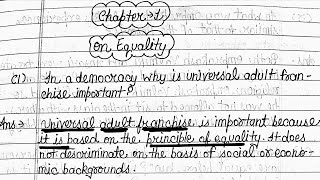 Chapter-1
On Equality
Q1). In a democracy why is universal adult fran-
chise important?
Ans → Universal adult franchise is important because
it is based on the principle of equality. It does
not descriminate on the basis of social or econo-
mic backgrounds.